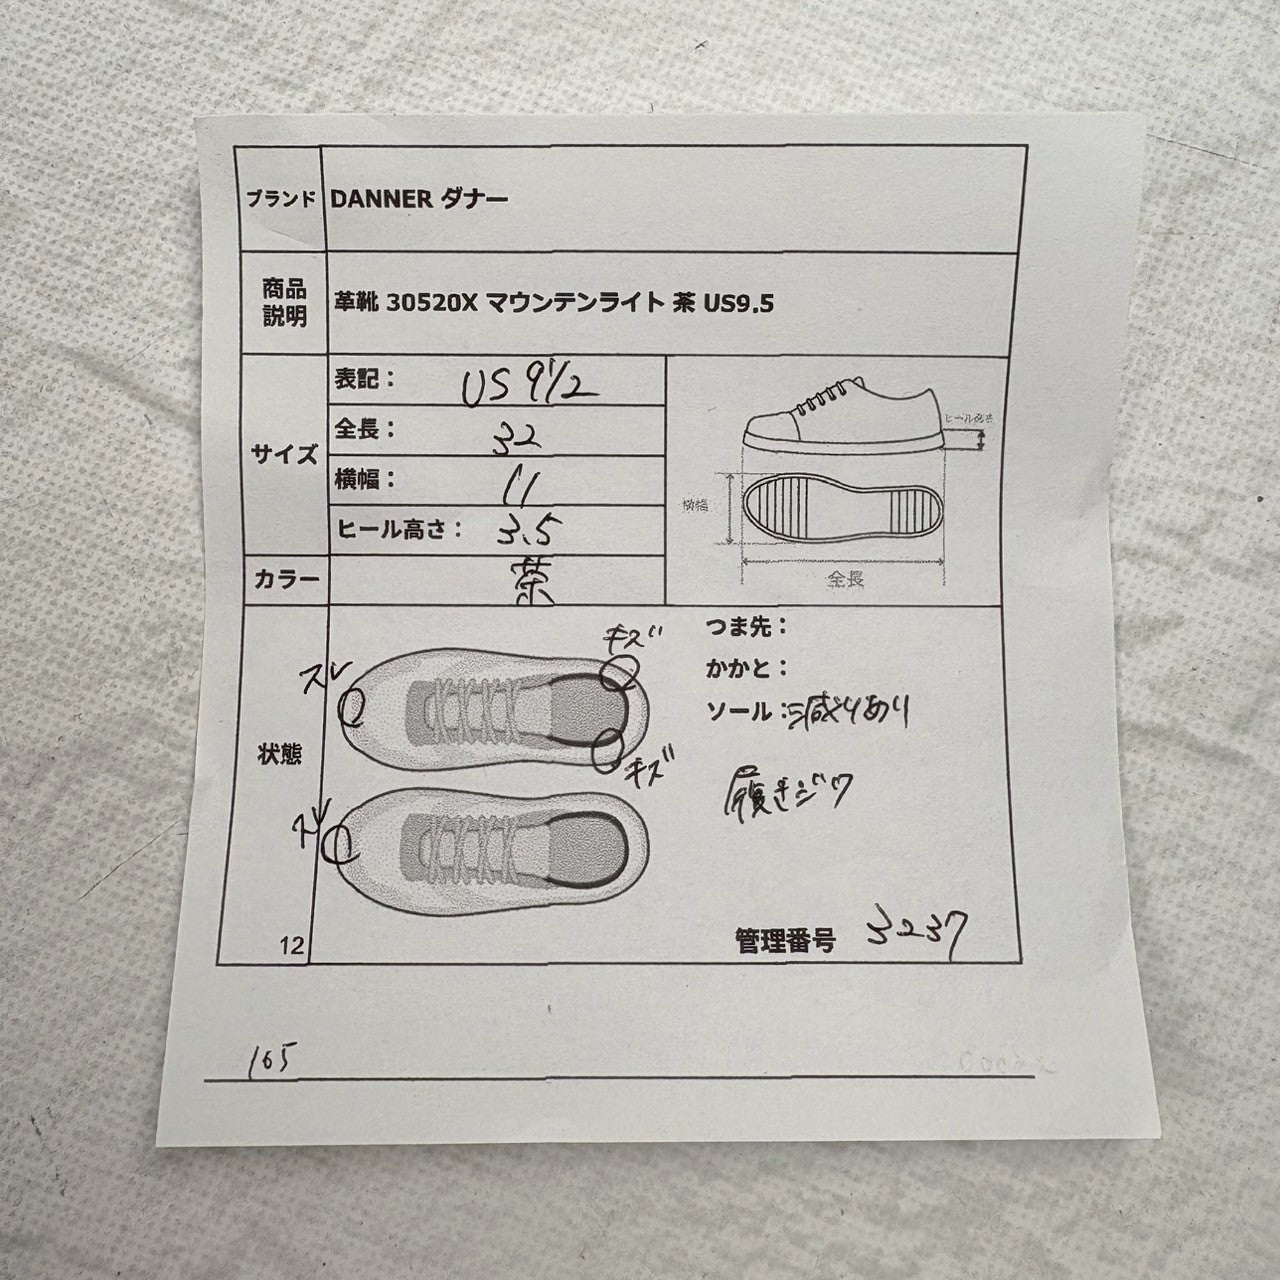 ブランド DANNER ダナー
商品説明 革靴 30520X マウンテンライト 茶 US9.5
サイズ
表記： US 9 1/2
全長： 32
横幅： 11
ヒール高さ： 3.5
ヒール高さ
横幅
全長
カラー 茶
状態
スレ
キズ
キズ
スレ
つま先：
かかと：
ソール： 減りあり
履きジワ
12
管理番号 3237
105